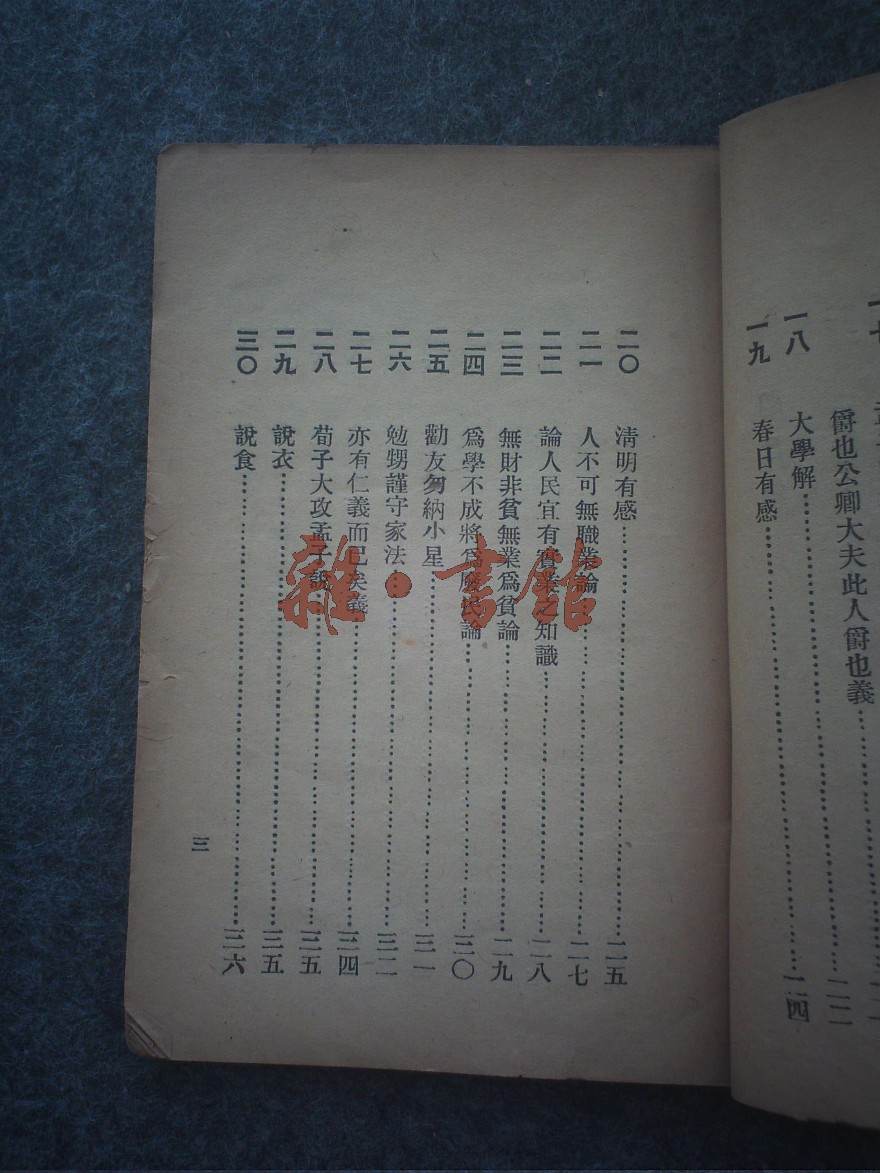 爵也公卿大夫此人爵也義……二二
一八 大學解……二四
一九 春日有感……
二〇 清明有感……二五
二一 人不可無職業論……二七
二二 論人民宜有實業之知識……二八
二三 無財非貧無業爲貧論……二九
二四 爲學不成將爲廢民論……三〇
二五 勸友勿納小星……三一
二六 勉甥謹守家法……三二
二七 亦有仁義而已矣義……三四
二八 荀子大攻孟子說……三五
二九 說衣……三五
三〇 說食……三六
三
雜·書館